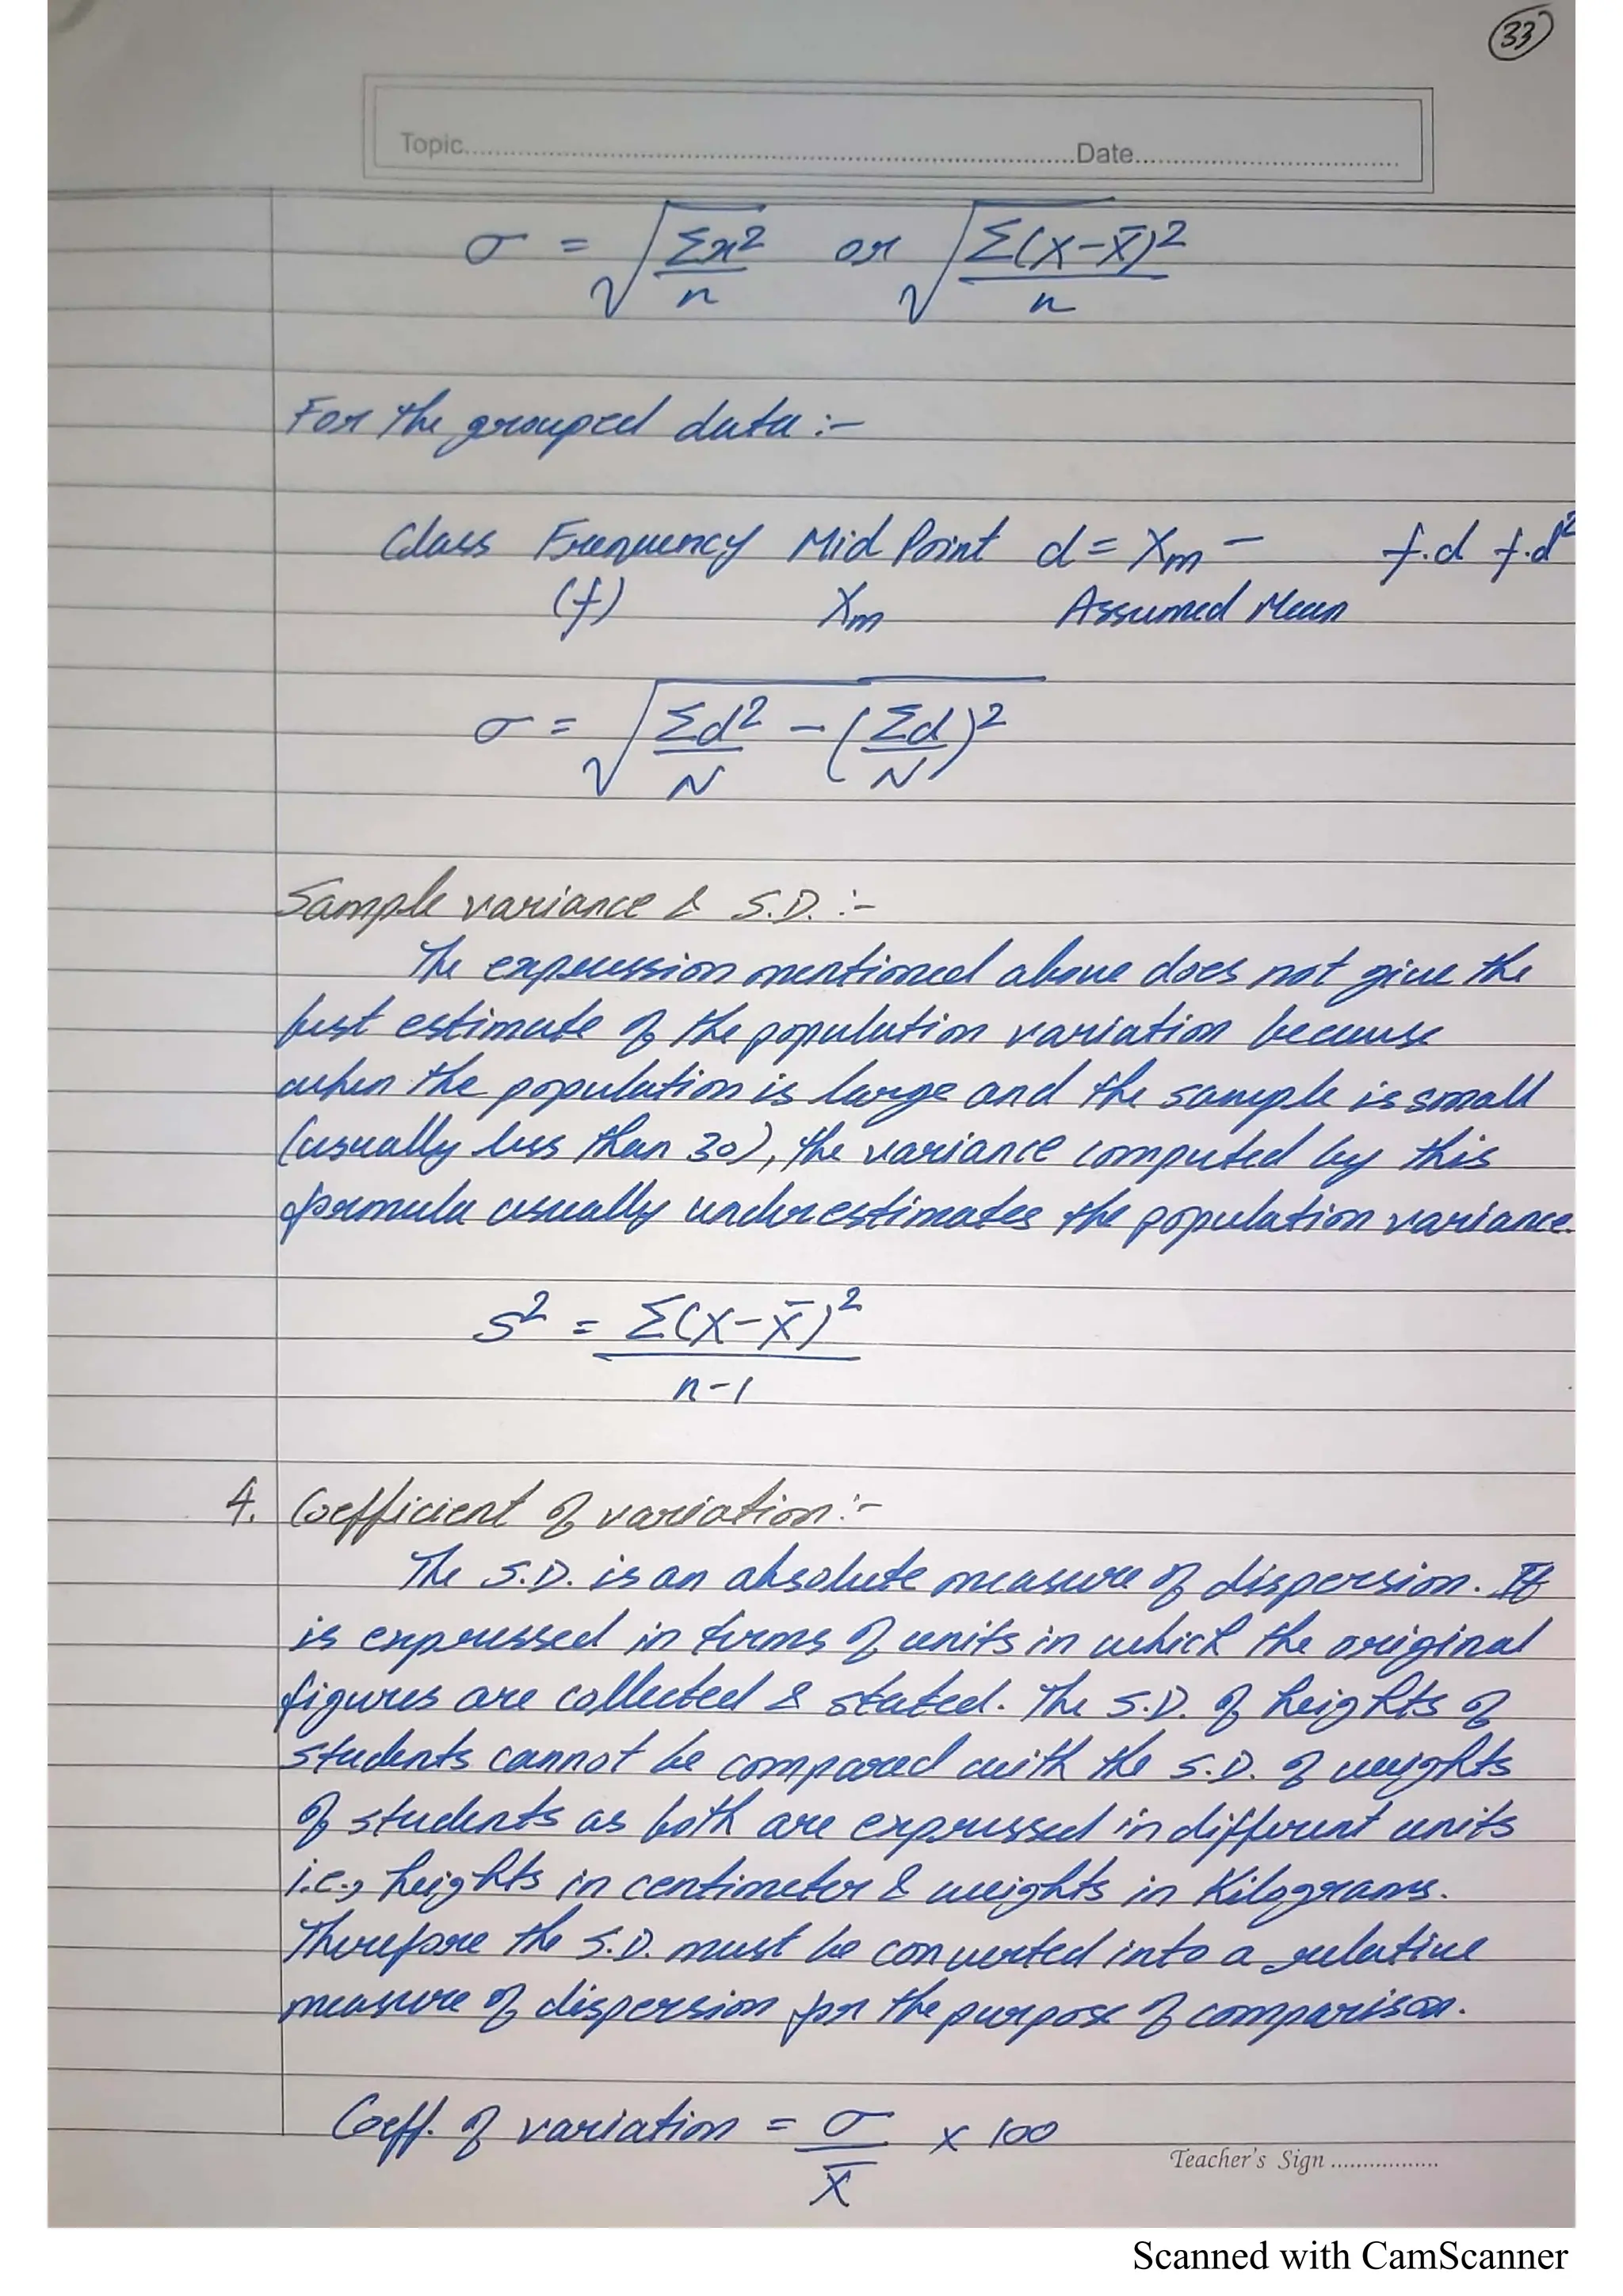 33
Topic..........Date..........
σ = √(Σx²/n) or √(Σ(X-X̄)²/n)
For the grouped data :-
Class Frequency Mid Point d = Xm - f.d f.d²
(f) Xm Assumed Mean
σ = √(Σd²/N - (Σd/N)²)
Sample variance & S.D. :-
The expression mentioned above does not give the
best estimate of the population variation because
when the population is large and the sample is small
(usually less than 30), the variance computed by this
formula usually underestimates the population variance.
S² = Σ(X-X̄)²
n-1
4. Coefficient of variation :-
The S.D. is an absolute measure of dispersion. It
is expressed in terms of units in which the original
figures are collected & stated. The S.D. of heights of
students cannot be compared with the S.D. of weights
of students as both are expressed in different units
i.e., heights in centimeter & weights in Kilograms.
Therefore the S.D. must be converted into a relative
measure of dispersion for the purpose of comparison.
Coeff. of variation = σ/X̄ x 100
Teacher's Sign ..................
Scanned with CamScanner